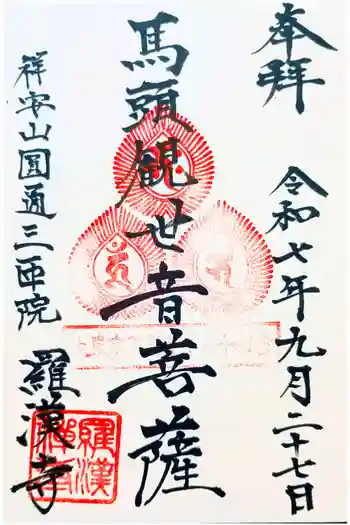 奉拝
令和七年九月二十七日
馬頭観世音菩薩
祥安山圓通三匝院
羅漢寺